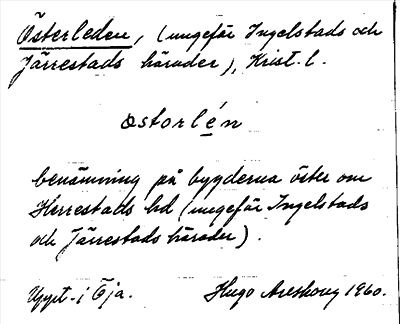 Österleden, (ungefär Ingelstads och
Järrestads härader), Krist. l.
østorlén
benämning på bygderna öster om
Herrestads hd (ungefär Ingelstads
och Järrestads härader).
Uppt. i Öja. Hugo Areskoug 1960.